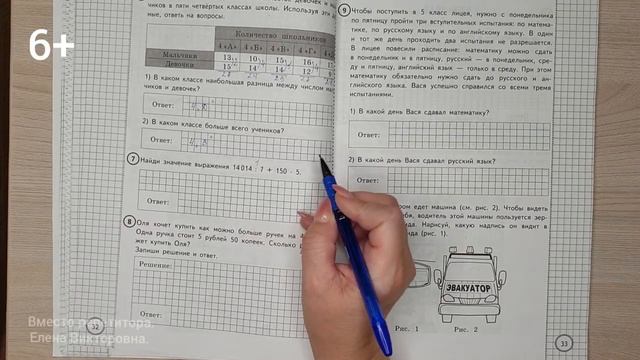 6+
в пяти четвёртых классах школы. Используя эти
ные, ответь на вопросы.
Количество школьников
4 «А» 4 «Б» 4 «В» 4 «Г»
Мальчики 13 10 15 16
Девочки 15 14 14 12
1) В каком классе наибольшая разница между числом
чиков и девочек?
Ответ:
2) В каком классе больше всего учеников?
Ответ:
7 Найди значение выражения 14 014 : 7 + 150 · 5.
8 Оля хочет купить как можно больше ручек на
Одна ручка стоит 5 рублей 50 копеек. Сколько
жет купить Оля?
Запиши решение и ответ.
Решение:
Ответ:
32
Вместо репетитора.
Елена Викторовна.
9 Чтобы поступить в 5 класс лицея, нужно с понедельника
по пятницу пройти три вступительных испытания: по матема-
тике, по русскому языку и по английскому языку. В один
и тот же день проходить два испытания не разрешается.
В лицее повесили расписание: математику можно сдать
в понедельник и в пятницу, русский — в понедельник, сре-
ду и пятницу, английский язык — только в среду. При этом
математику обязательно нужно сдать до русского и ан-
глийского языка. Вася успешно справился со всеми тремя
испытаниями.
1) В какой день Вася сдавал математику?
Ответ:
2) В какой день Вася сдавал русский язык?
Ответ:
ром едет машина (см. рис. 2). Чтобы видеть
водитель этой машины пользуется зер-
Нарисуй, какую надпись он видит в
(рис. 1).
ЭВАКУАТОР
Рис. 1 Рис. 2
33